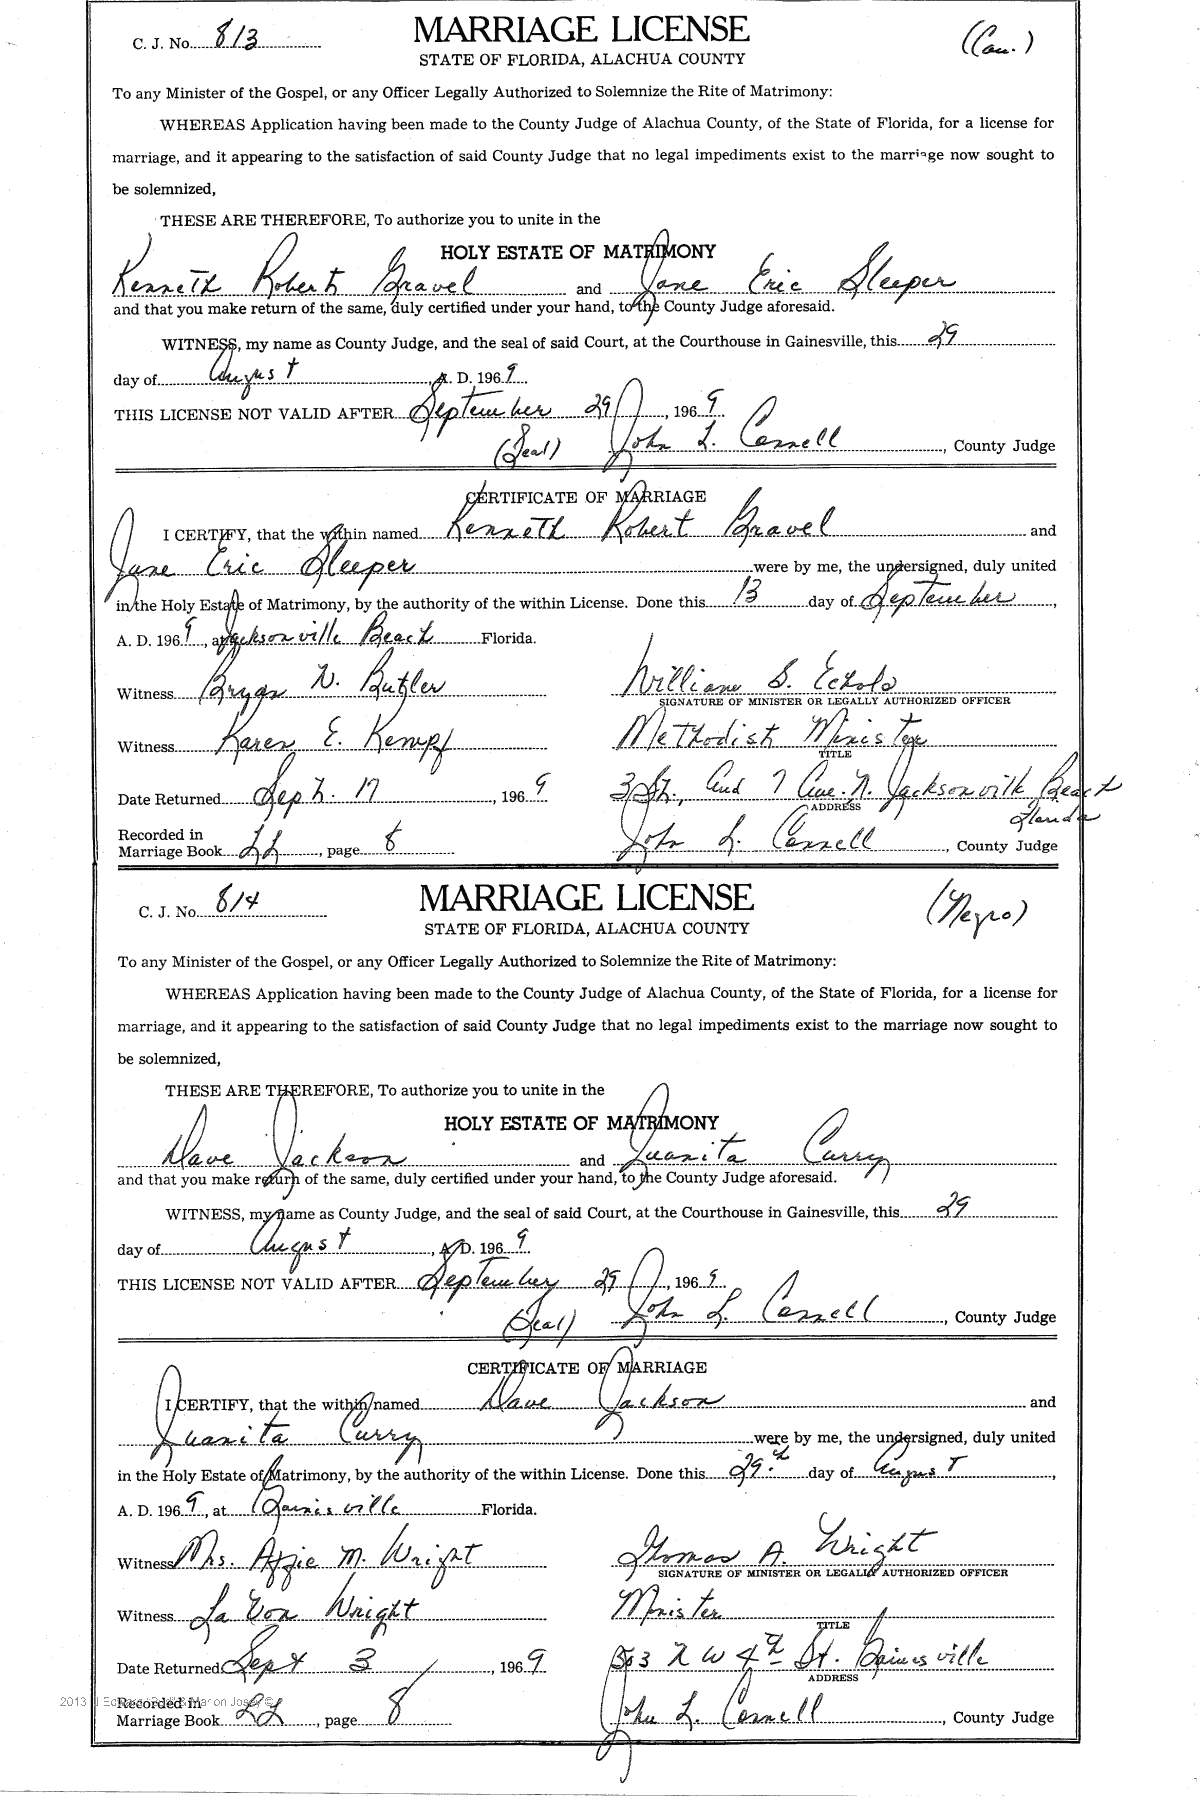 C. J. No. 813
MARRIAGE LICENSE
(Cau.)
STATE OF FLORIDA, ALACHUA COUNTY
To any Minister of the Gospel, or any Officer Legally Authorized to Solemnize the Rite of Matrimony:
WHEREAS Application having been made to the County Judge of Alachua County, of the State of Florida, for a license for
marriage, and it appearing to the satisfaction of said County Judge that no legal impediments exist to the marriage now sought to
be solemnized,
THESE ARE THEREFORE, To authorize you to unite in the
HOLY ESTATE OF MATRIMONY
Kenneth Robert Gravel and Jane Eric Sleeper
and that you make return of the same, duly certified under your hand, to the County Judge aforesaid.
WITNESS, my name as County Judge, and the seal of said Court, at the Courthouse in Gainesville, this 29
day of August, A. D. 1969.
THIS LICENSE NOT VALID AFTER September 29, 1969.
(Seal) John L. Connell, County Judge
CERTIFICATE OF MARRIAGE
I CERTIFY, that the within named Kenneth Robert Gravel and
Jane Eric Sleeper were by me, the undersigned, duly united
in the Holy Estate of Matrimony, by the authority of the within License. Done this 13 day of September,
A. D. 1969, at Jacksonville Beach Florida.
Witness N. Butler William S. Echols
SIGNATURE OF MINISTER OR LEGALLY AUTHORIZED OFFICER
Witness Karen E. Kempf Methodist Minister
TITLE
Date Returned Sept. 17, 1969 3 St., and 7 Ave. N. Jacksonville Beach
ADDRESS Florida
Recorded in
Marriage Book LL, page 8 John L. Connell, County Judge
C. J. No. 814
MARRIAGE LICENSE
(Negro)
STATE OF FLORIDA, ALACHUA COUNTY
To any Minister of the Gospel, or any Officer Legally Authorized to Solemnize the Rite of Matrimony:
WHEREAS Application having been made to the County Judge of Alachua County, of the State of Florida, for a license for
marriage, and it appearing to the satisfaction of said County Judge that no legal impediments exist to the marriage now sought to
be solemnized,
THESE ARE THEREFORE, To authorize you to unite in the
HOLY ESTATE OF MATRIMONY
Dave Jackson and Juanita Curry
and that you make return of the same, duly certified under your hand, to the County Judge aforesaid.
WITNESS, my name as County Judge, and the seal of said Court, at the Courthouse in Gainesville, this 29
day of August, A. D. 1969.
THIS LICENSE NOT VALID AFTER September 29, 1969.
(Seal) John L. Connell, County Judge
CERTIFICATE OF MARRIAGE
I CERTIFY, that the within named Dave Jackson and
Juanita Curry were by me, the undersigned, duly united
in the Holy Estate of Matrimony, by the authority of the within License. Done this 29th day of August,
A. D. 1969, at Gainesville Florida.
Witness Mrs. M. Wright Thomas A. Wright
SIGNATURE OF MINISTER OR LEGALLY AUTHORIZED OFFICER
Witness La Von Wright Minister
TITLE
Date Returned Sept 3, 1969 503 N W 4th St. Gainesville
ADDRESS
2013
Recorded in
Marriage Book LL, page 8 John L. Connell, County Judge